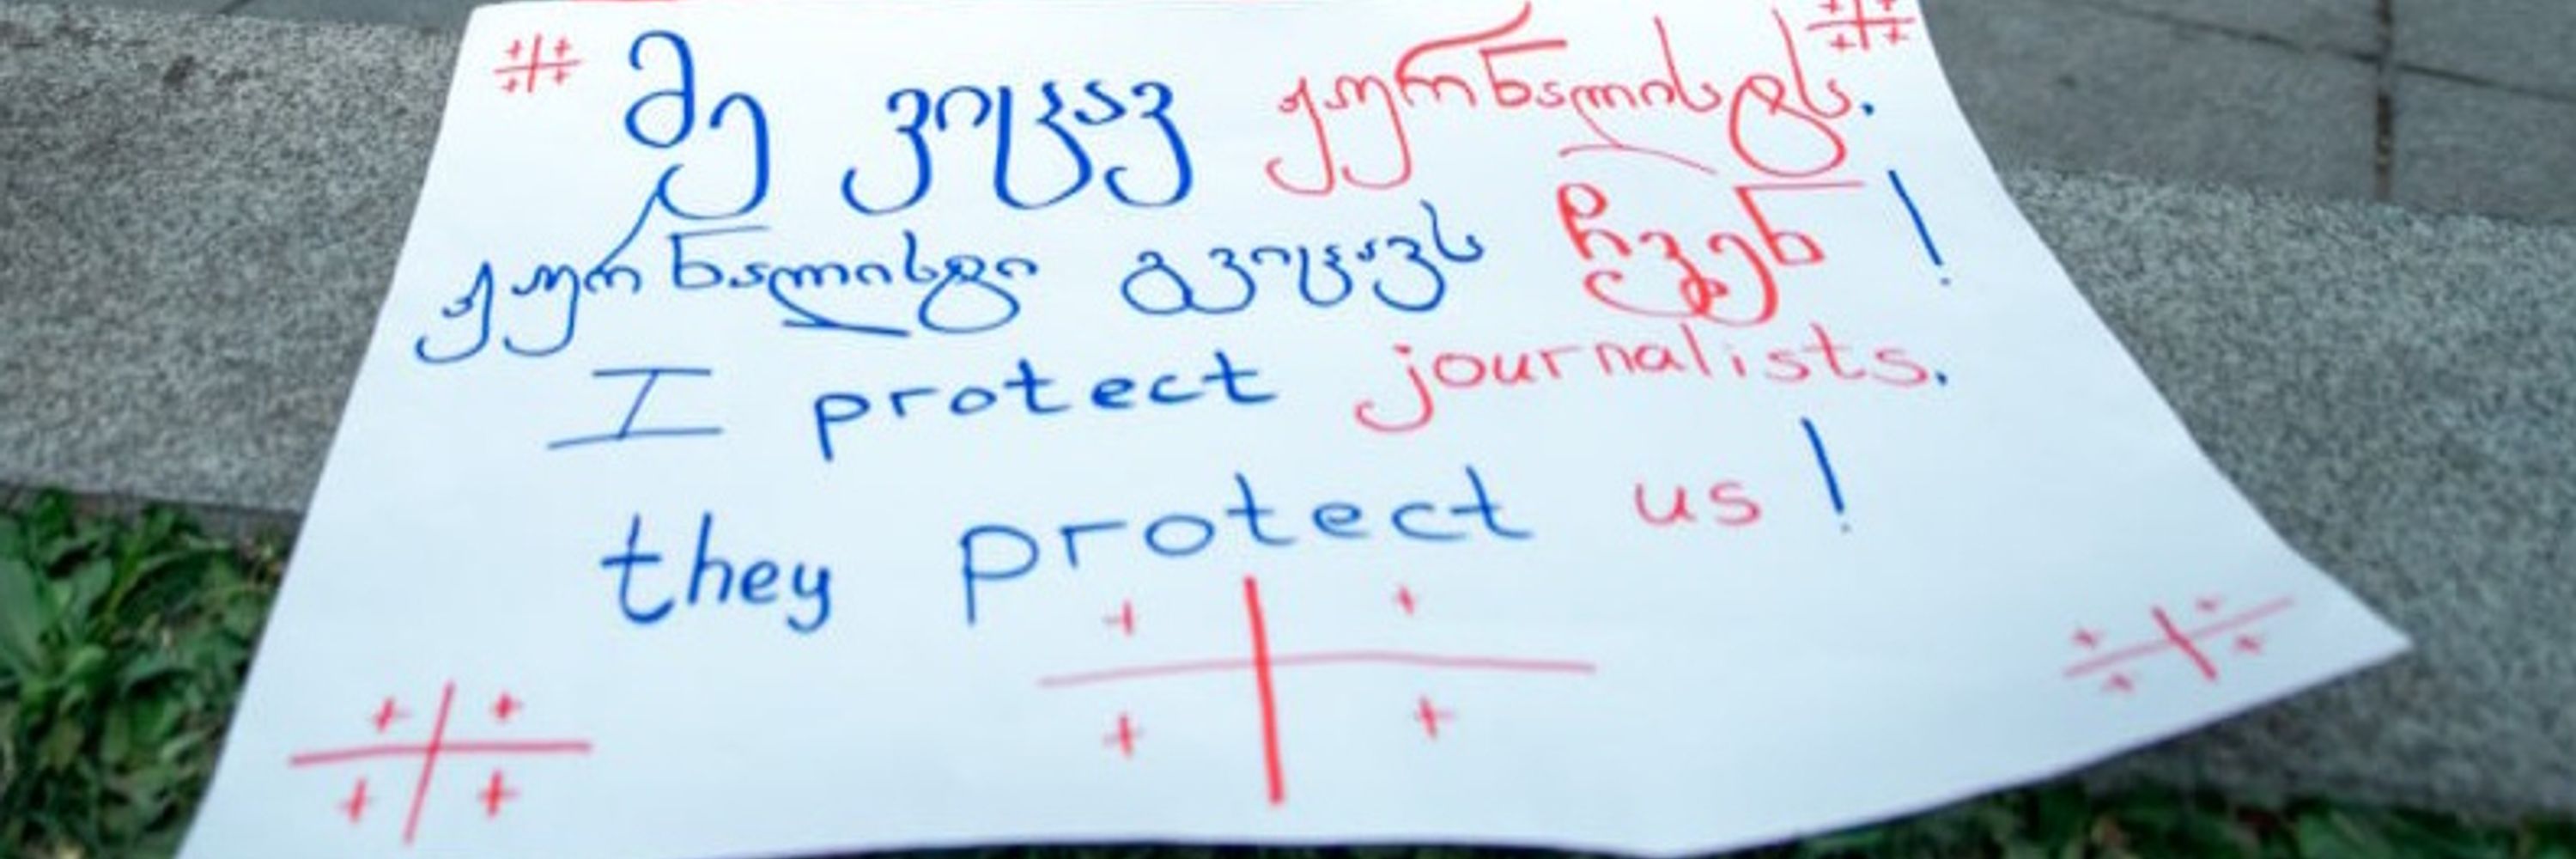 მე ვიცავ ჟურნალისტს.
ჟურნალისტი გვიცავს ჩვენ!
I protect journalists.
they protect us!